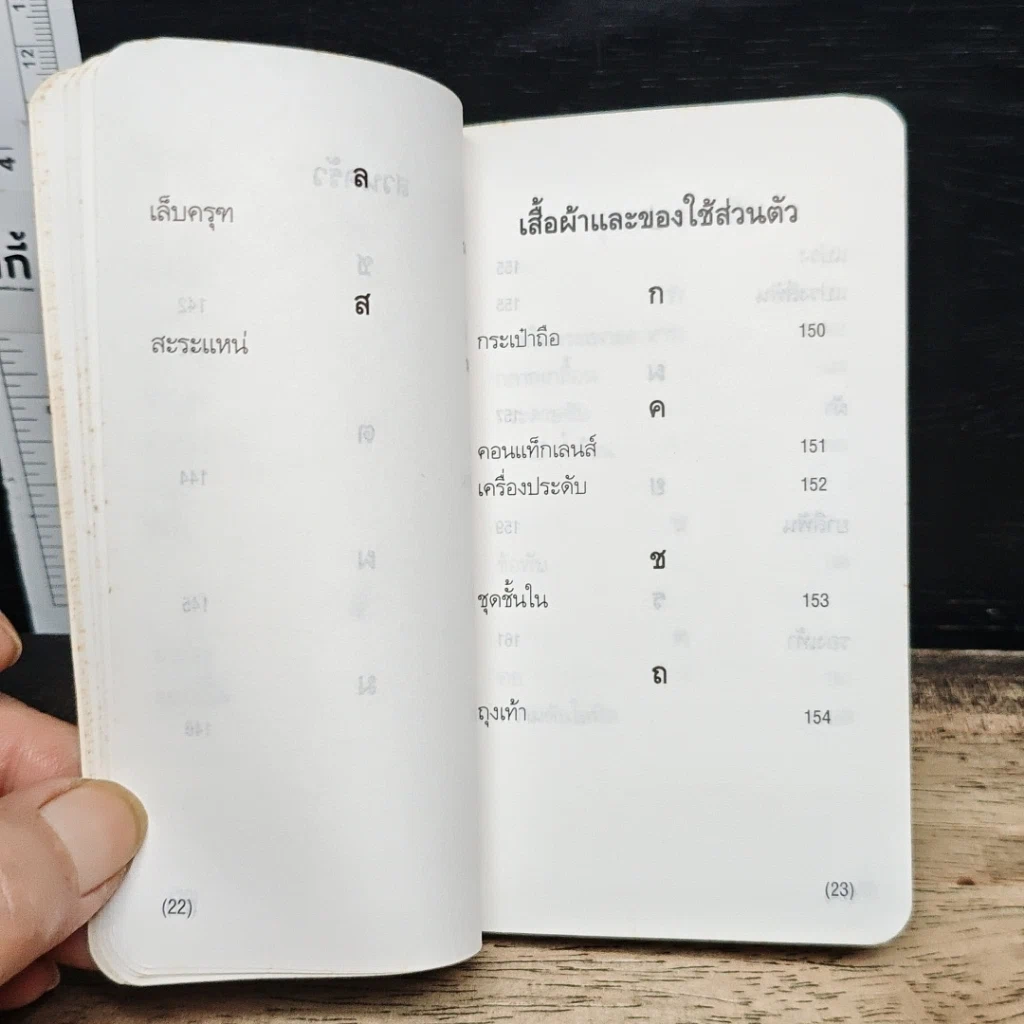 ล
เล็บครุฑ
ส
สะระแหน่
(22)
เสื้อผ้าและของใช้ส่วนตัว
ก
กระเป๋าถือ 150
ค
คอนแท็กเลนส์ 151
เครื่องประดับ 152
ช
ชุดชั้นใน 153
ถ
ถุงเท้า 154
(23)
12
4